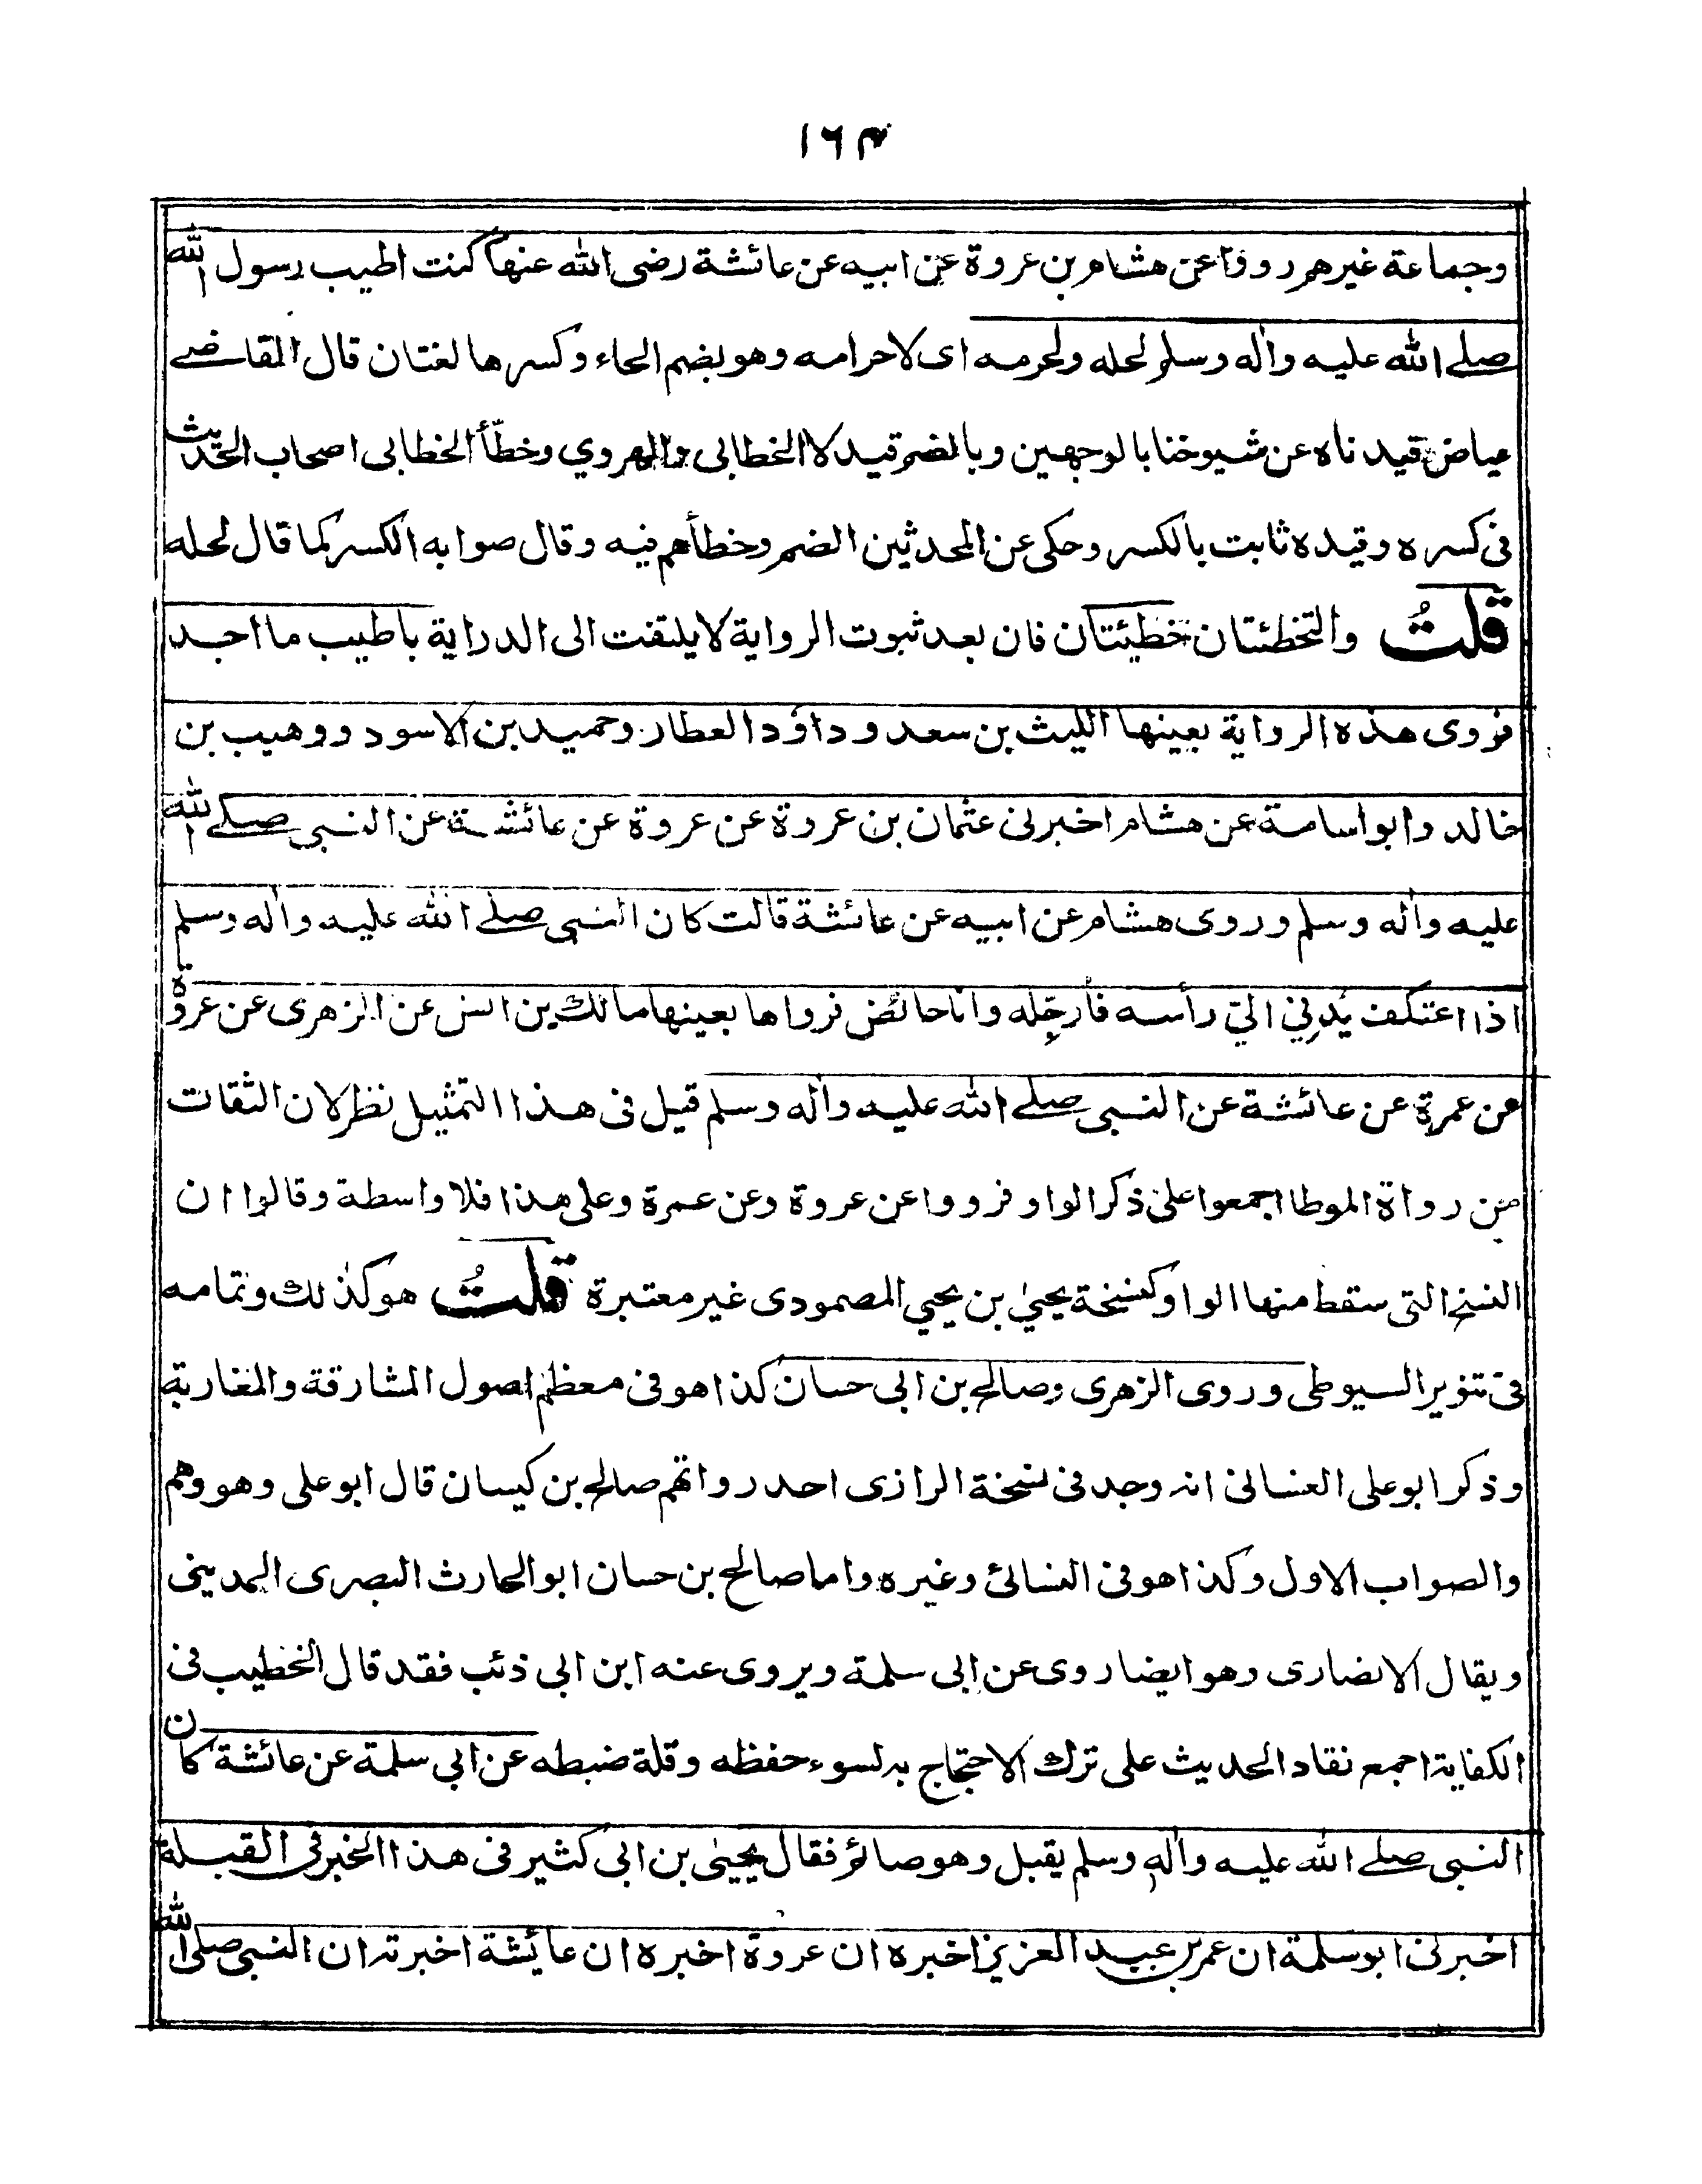 ١٦٣
وجماعة غيرهم رووا عن هشام بن عروة عن ابيه عن عائشة رضى الله عنها كنت اطيب رسول الله
صلے الله عليه واٰله وسلم لحله ولحرمه اى لاحرامه وهو بضم الحاء وكسرها لغتان قال القاضے
عياض قيدناه عن شيوخنا بالوجهين وبالضم قيده الخطابى والهروي وخطّأ الخطابى اصحاب الحديث
فى كسره وقيده ثابت بالكسر وحكى عن المحدثين الضم وخطأهم فيه وقال صوابه الكسر كما قال لحله
قلتُ والتخطئتان خطيئتان فان بعد ثبوت الرواية لا يلتفت الى الدراية باطيب ما اجد
فروى هذه الرواية بعينها الليث بن سعد وداؤد العطار وحميد بن الاسود ووهيب بن
خالد وابو اسامة عن هشام اخبرنى عثمان بن عروة عن عروة عن عائشة عن النبى صلے الله
عليه واٰله وسلم وروى هشام عن ابيه عن عائشة قالت كان النبى صلے الله عليه واٰله وسلم
اذا اعتكف يُدنِي اليّ رأسه فأرجّله وانا حائض فرواها بعينها مالك بن انس عن الزهرى عن عروة
عن عمرة عن عائشة عن النبى صلے الله عليه واٰله وسلم قيل فى هذا التمثيل نظر لان الثقات
من رواة الموطا اجمعوا على ذكر الواو فرووا عن عروة وعن عمرة وعلى هذا فلا واسطة وقالوا ان
النسخ التى سقط منها الواو كنسخة يحيىٰ بن يحيي المصمودى غير معتبرة قلتُ هو كذٰلك وتمامه
فى تنوير السيوطى وروى الزهرى وصالح بن ابى حسان كذا هو فى معظم اصول المشارقة والمغاربة
وذكر ابو على الغسانى انہ وجد فى نسخة الرازى احد رواتهم صالح بن كيسان قال ابو على وهو وهم
والصواب الاول وكذا هو فى النسائئ وغيره واما صالح بن حسان ابو الحارث البصرى المدينى
ويقال الانصارى وهو ايضا روى عن ابى سلمة ويروى عنه ابن ابى ذئب فقد قال الخطيب فى
الكفاية اجمع نقاد الحديث على ترك الاحتجاج بہ لسوء حفظه وقلة ضبطه عن ابي سلمة عن عائشة كان
النبى صلے الله عليه واٰله وسلم يقبل وهو صائم فقال يحيىٰ بن ابى كثير فى هذا الخبر فى القبلة
اخبرنى ابو سلمة ان عمر بن عبد العزيز اخبره ان عروة اخبره ان عائشة اخبرتہ ان النبى صلى الله